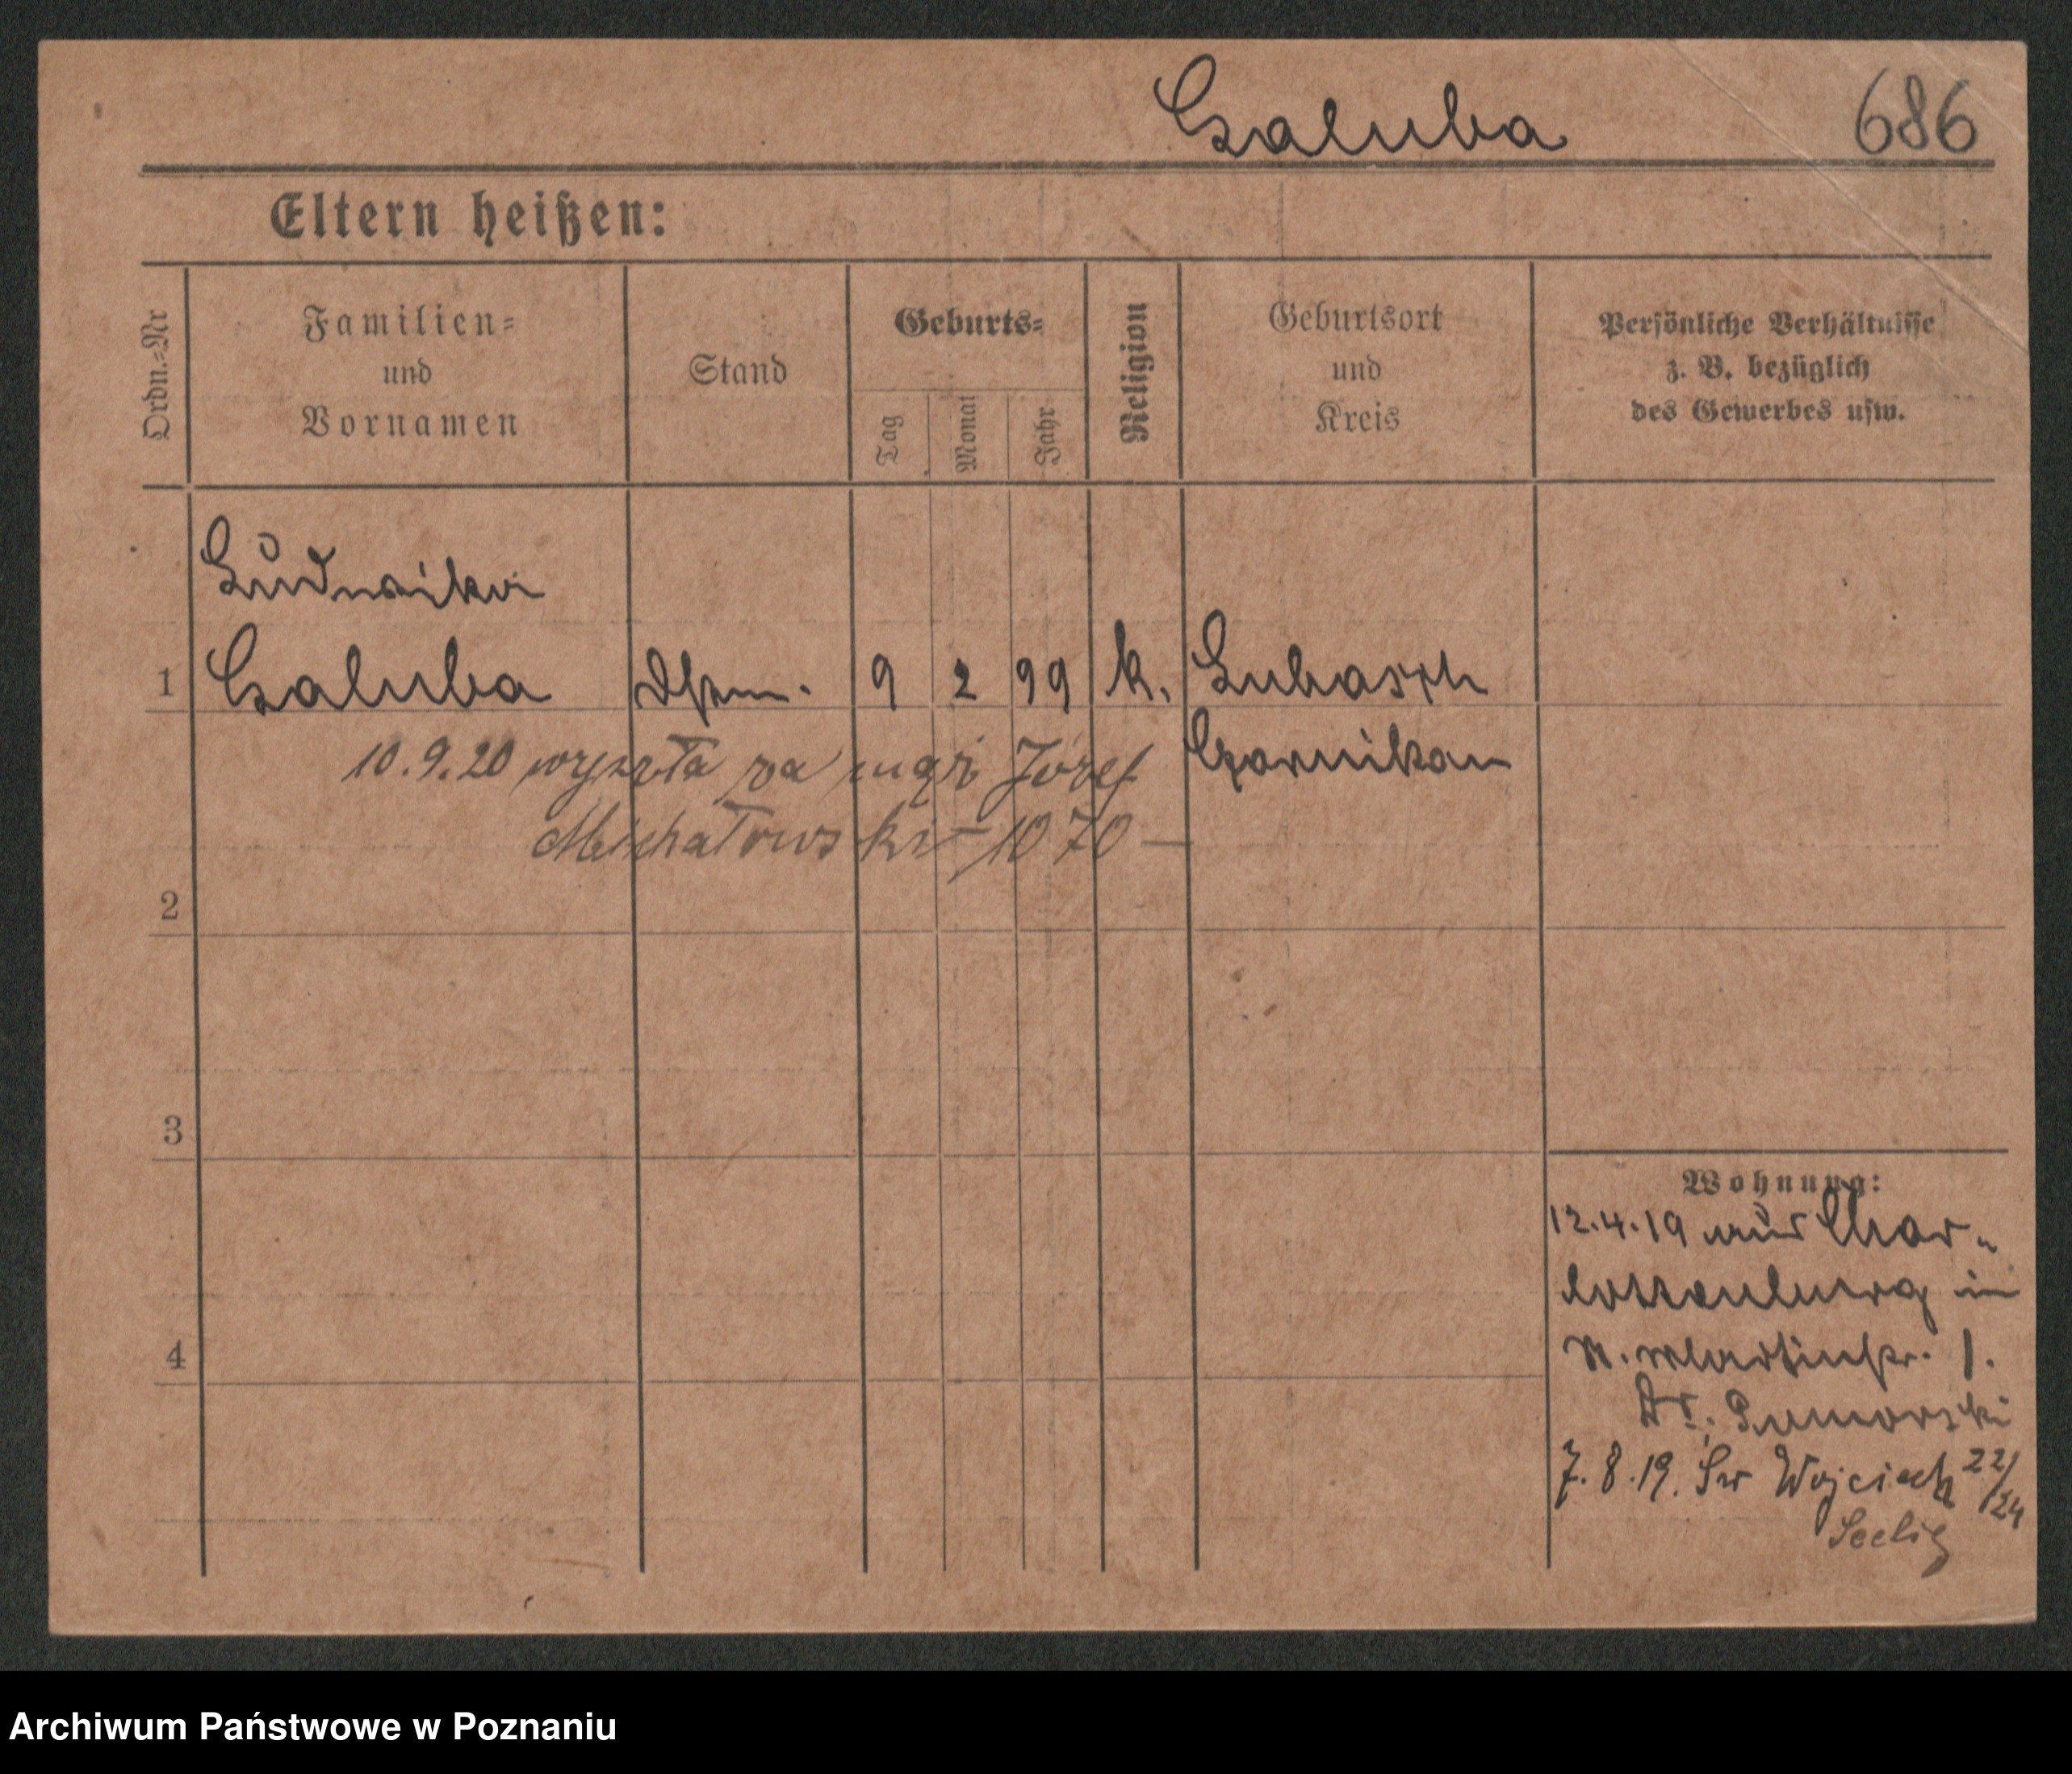 Czaluba 686
Eltern heißen:
Ordn.=Nr
Familien=
und
Vornamen
Stand
Geburts=
Tag
Monat
Jahr
Religion
Geburtsort
und
Kreis
Persönliche Verhältnisse
z. B. bezüglich
des Gewerbes usw.
Ludwika
1 Czaluba 9 2 99 k. Lubasch
Czarnikau
10.9.20 wyszła za mąż Józef
Michałowski 1070 —
2
3
4
Wohnung:
12.4.19 aus Char-
lottenburg in
St. Martinstr. 1.
Dr.
7.8.19. Św Wojciech 22/24
Seelig
Archiwum Państwowe w Poznaniu